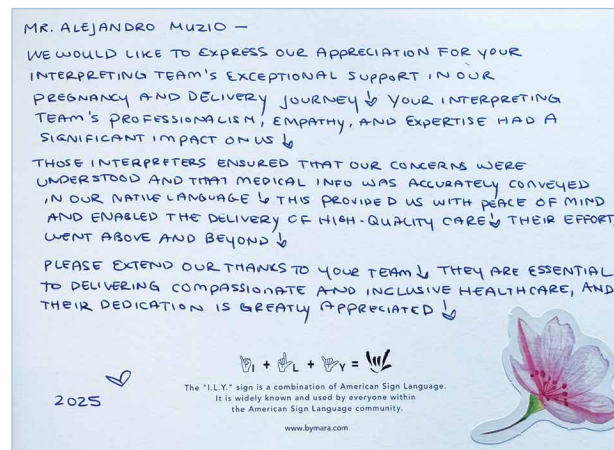 MR. ALEJANDRO MUZIO —
WE WOULD LIKE TO EXPRESS OUR APPRECIATION FOR YOUR
INTERPRETING TEAM'S EXCEPTIONAL SUPPORT IN OUR
PREGNANCY AND DELIVERY JOURNEY! YOUR INTERPRETING
TEAM'S PROFESSIONALISM, EMPATHY, AND EXPERTISE HAD A
SIGNIFICANT IMPACT ON US!
THOSE INTERPRETERS ENSURED THAT OUR CONCERNS WERE
UNDERSTOOD AND THAT MEDICAL INFO WAS ACCURATELY CONVEYED
IN OUR NATIVE LANGUAGE! THIS PROVIDED US WITH PEACE OF MIND
AND ENABLED THE DELIVERY OF HIGH-QUALITY CARE! THEIR EFFORT
WENT ABOVE AND BEYOND!
PLEASE EXTEND OUR THANKS TO YOUR TEAM! THEY ARE ESSENTIAL
TO DELIVERING COMPASSIONATE AND INCLUSIVE HEALTHCARE, AND
THEIR DEDICATION IS GREATLY APPRECIATED!
I + L + Y =
The "I.L.Y." sign is a combination of American Sign Language.
It is widely known and used by everyone within
the American Sign Language community.
www.bymara.com
2025